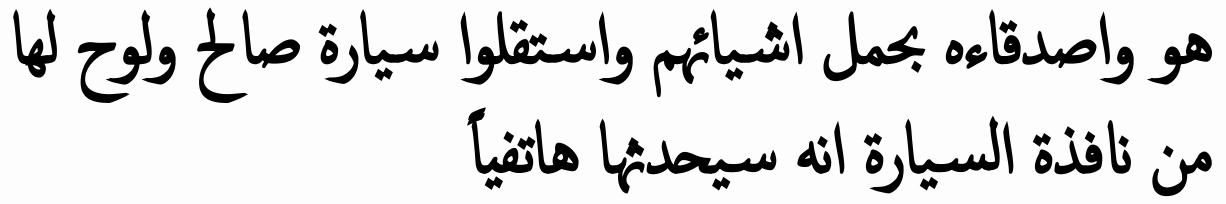 هو واصدقاءه بحمل اشيائهم واستقلوا سيارة صالح ولوح لها
من نافذة السيارة انه سيحدثها هاتفياً